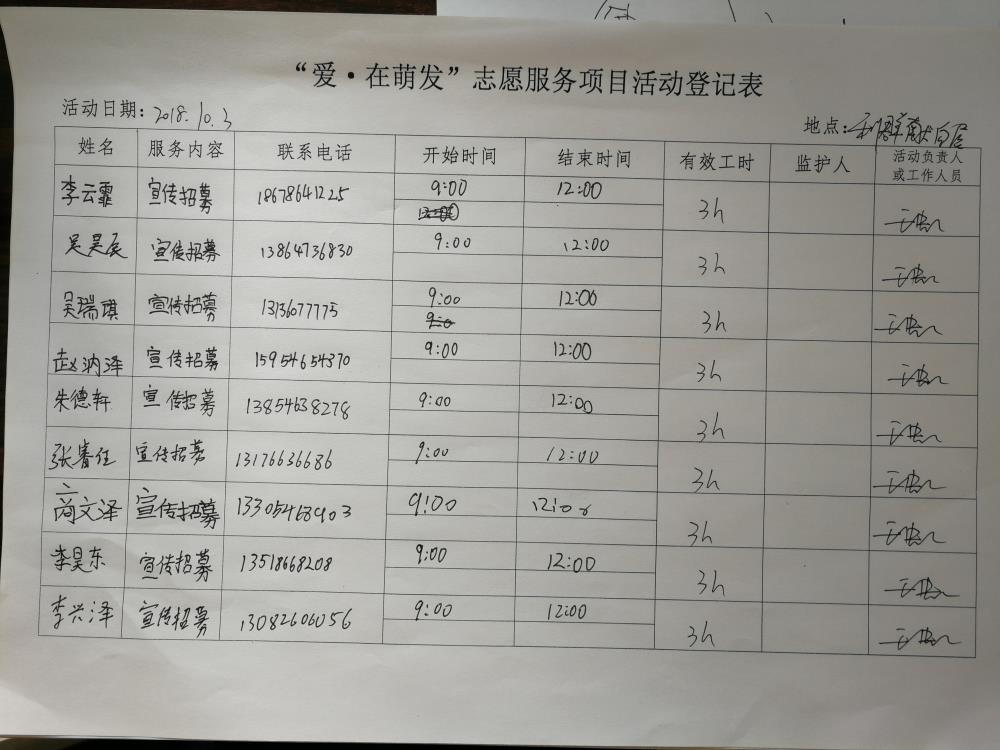 “爱·在萌发”志愿服务项目活动登记表
活动日期：2018.10.3 地点：
姓名 服务内容 联系电话 开始时间 结束时间 有效工时 监护人 活动负责人或工作人员
李云霏 宣传招募 18678641225 9:00 12:00 3h
吴昊辰 宣传招募 13864736830 9:00 12:00 3h
吴瑞琪 宣传招募 13136077775 9:00 12:00 3h
赵汭泽 宣传招募 15954654370 9:00 12:00 3h
朱德轩 宣传招募 13854638278 9:00 12:00 3h
张睿任 宣传招募 13176636686 9:00 12:00 3h
商文泽 宣传招募 13305468903 9:00 12:00 3h
李昊东 宣传招募 13518668208 9:00 12:00 3h
李兴泽 宣传招募 13082606056 9:00 12:00 3h